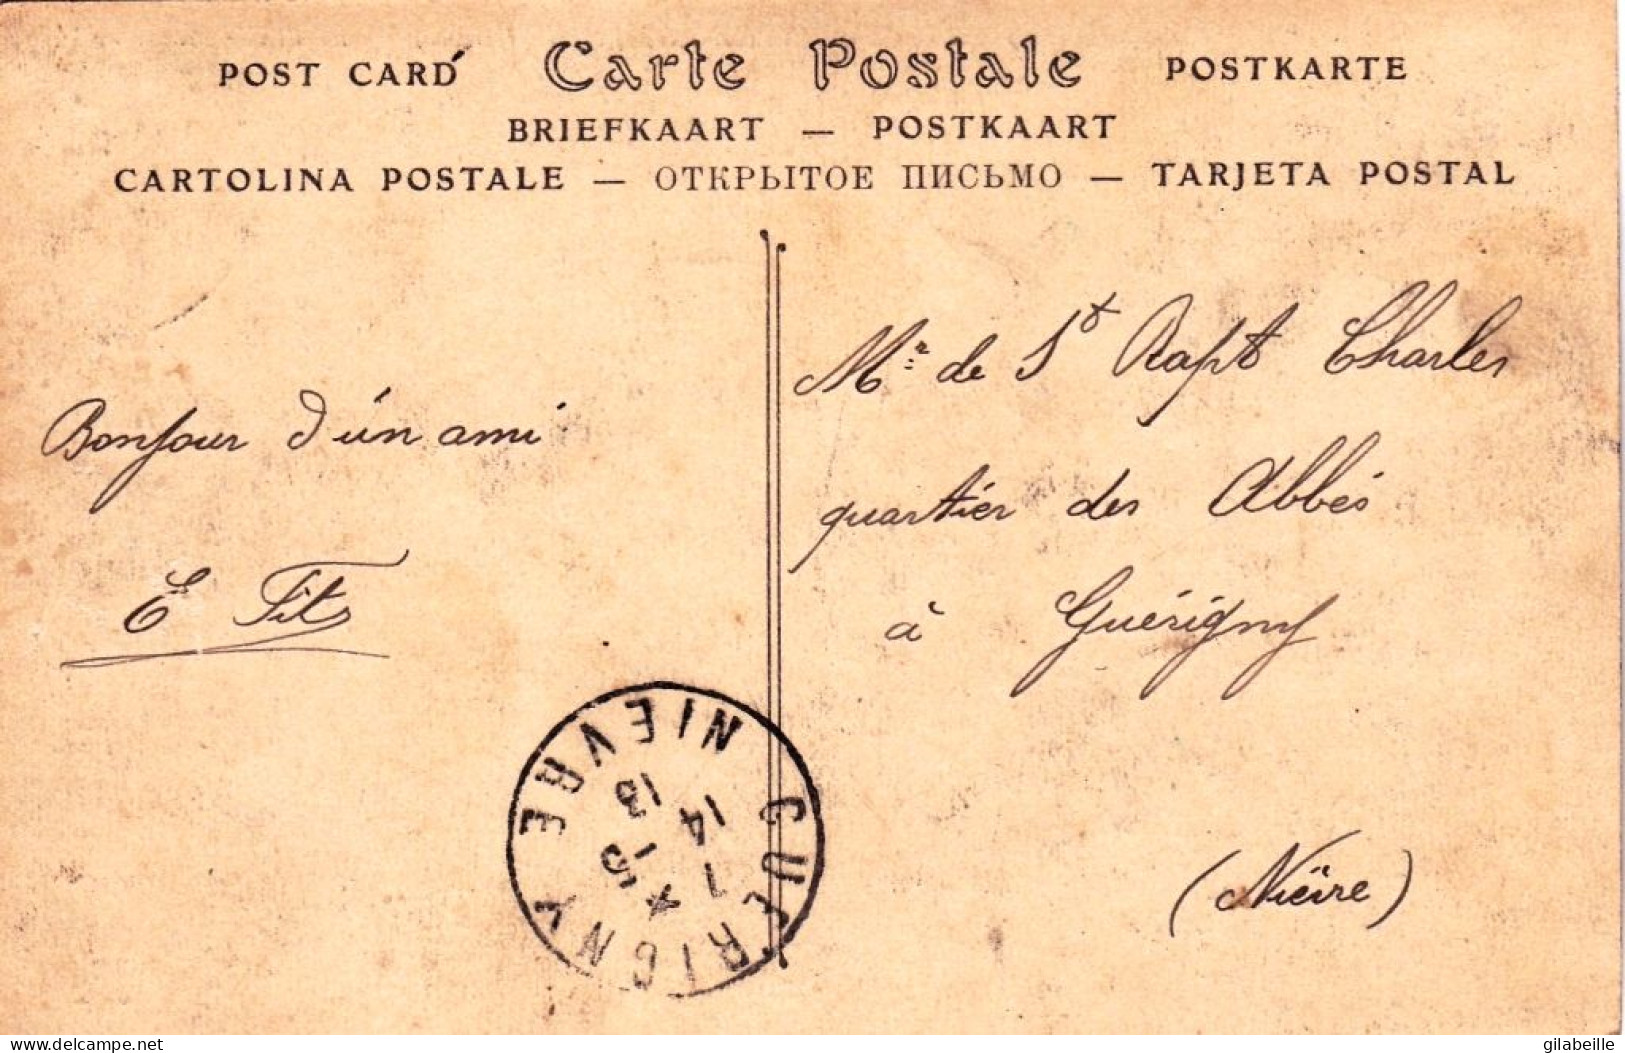 POST CARD Carte Postale POSTKARTE
BRIEFKAART — POSTKAART
CARTOLINA POSTALE — ОТКРЫТОЕ ПИСЬМО — TARJETA POSTAL
Bonjour d'un ami
E Fits
Mr de St Rapt Charles
quartier des Abbés
à Guérigny
(Nièvre)
GUERIGNY NIEVRE
delcampe.net
gilabeille